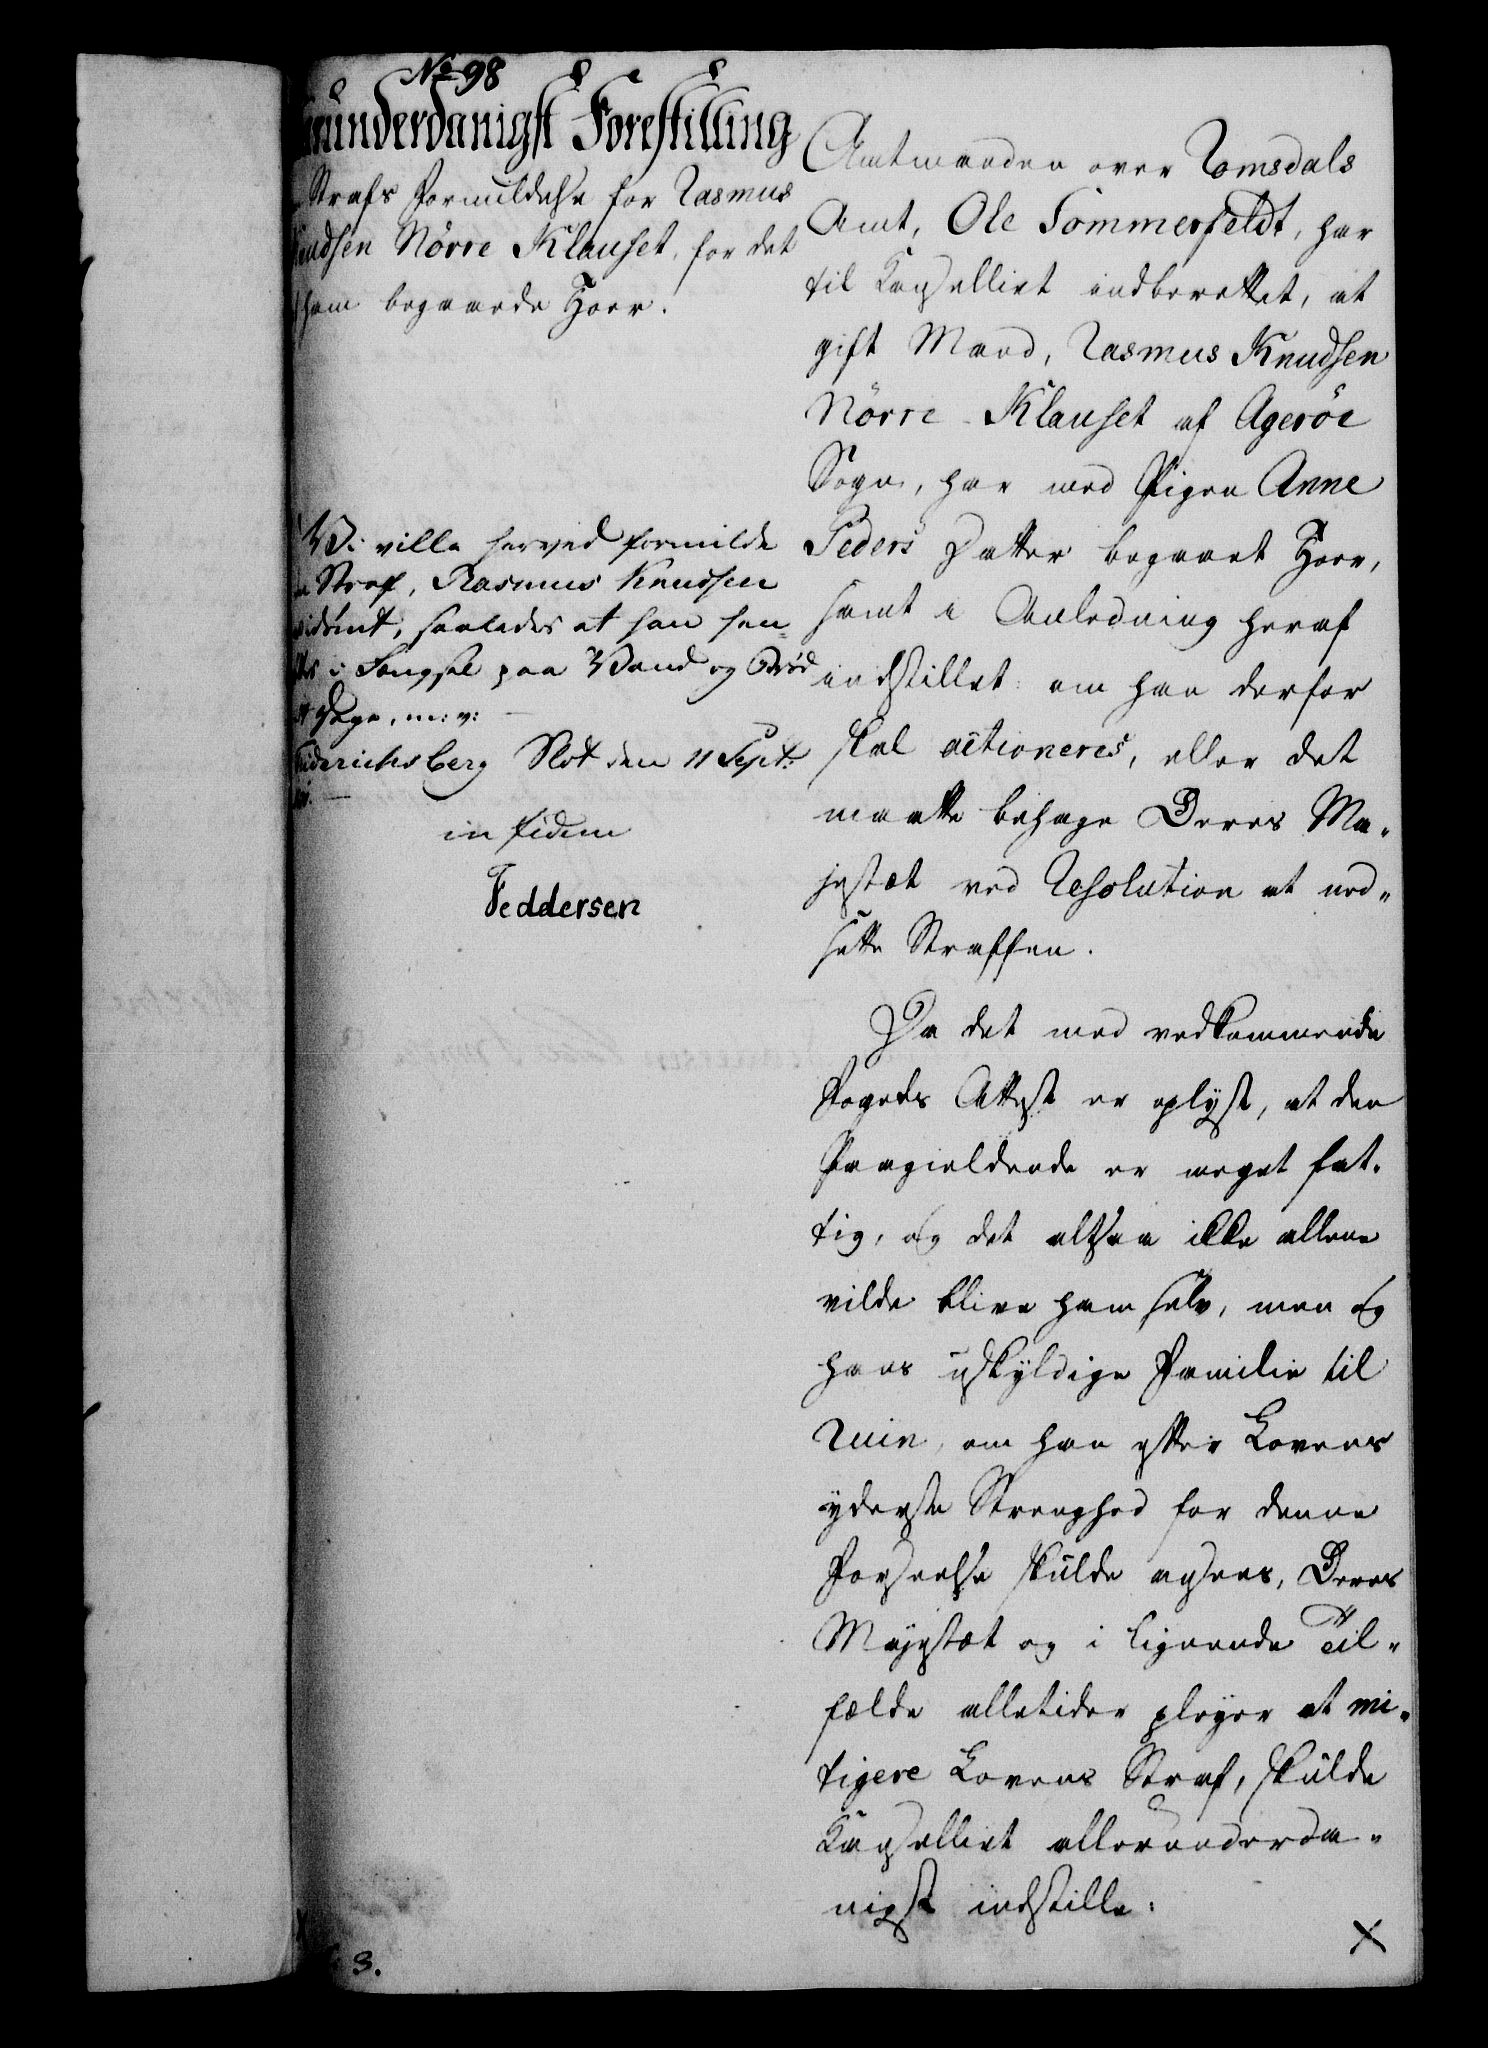 No 98
allerunderdanigst Forestilling
Strafs Formildelse for Rasmus
Knudsen Nörre Klauset, for det
ham begaaede Hoer.
Vi ville herved formilde
Straf, Rasmus Knudsen
idömt, saaledes at han hen=
i Fængsel paa Vand og Bröd
Dage, m: v:
Friderichsberg Slot den 11 Sept:
in fidem
Feddersen
Amtmanden over Romsdals
Amt, Ole Sommerfeldt, har
til Cancelliet indberettet, at
gift Mand, Rasmus Knudsen
Nörre Klauset af Ageröe
Sogn, har med Pigen Anne
Peders Datter begaaet Hoer,
samt i Anledning heraf
indstillet: om han derfor
skal actioneres, eller det
maatte behage Deres Ma-
jestæt ved Resolution at ned-
sette Straffen.
Da det med vedkommende
Fogeds Attest er oplyst, at den
Paagieldende er meget fat-
tig, og det altsaa ikke allene
vilde blive ham selv, men og
hans uskyldige Familie til
Ruin, om han efter Lovens
yderste Strenghed for denne
Forseelse skulde ansees, Deres
Majestæt og i lignende Til-
fælde alletider pleyer at mi-
tigere Lovens Straf, skulde
Cancelliet allerunderda-
nigst indstille:
X
3.